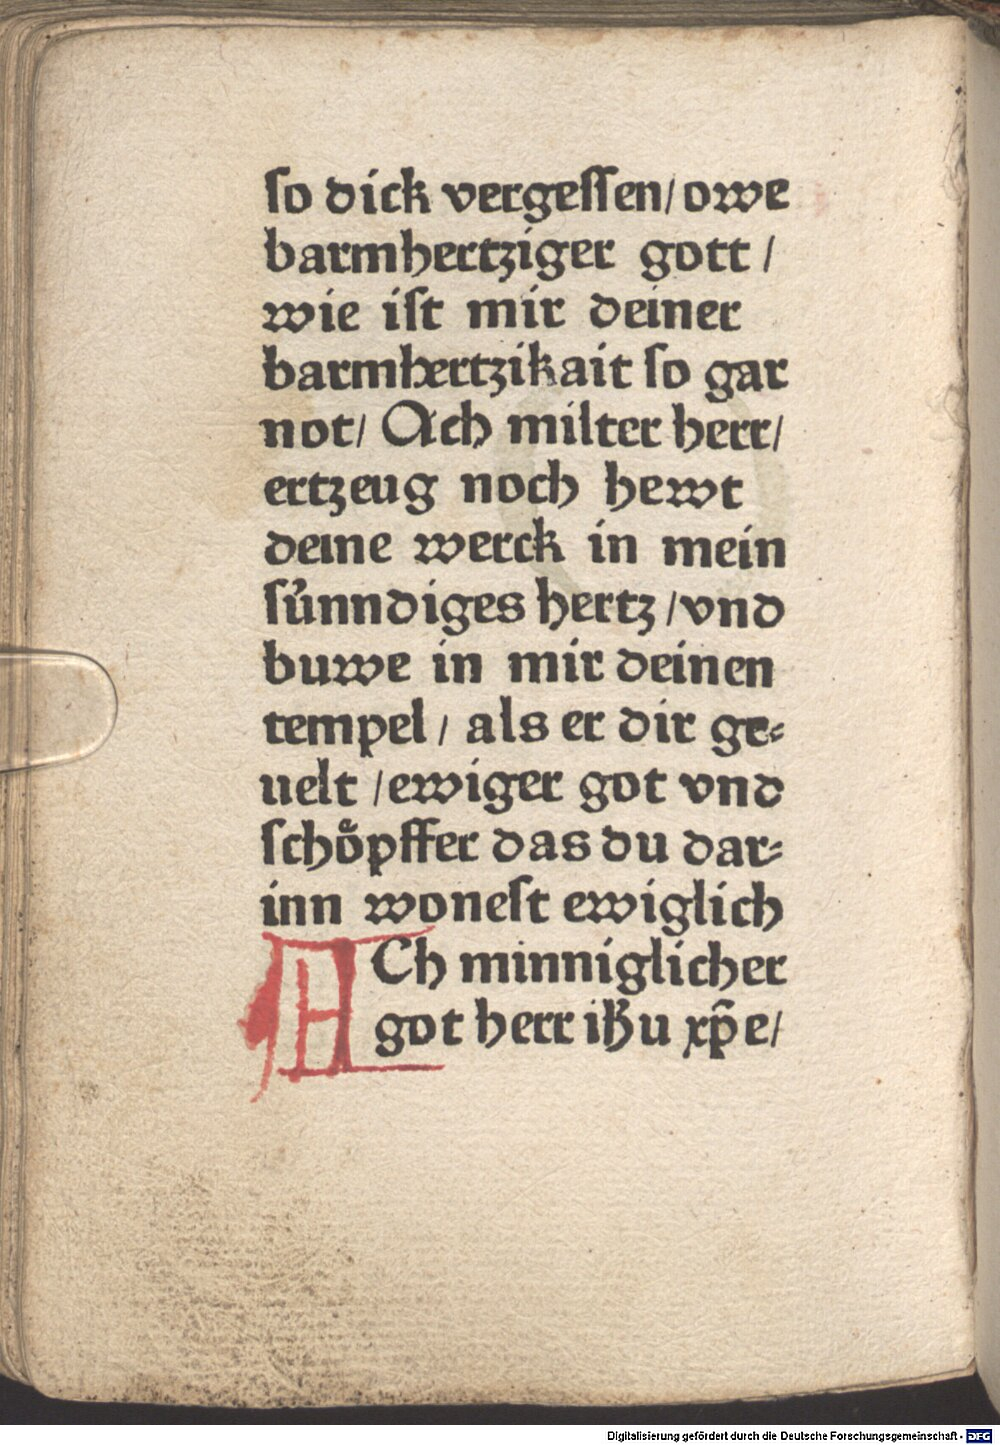 ſo dick vergeſſen/ owe
barmhertziger gott /
wie iſt mir deiner
barmhertzikait ſo gar
not/ Ach milter herr/
ertzeug noch hewt
deine werck in mein
ſu̇nndiges hertz /vnd
buwe in mir deinen
tempel / als er dir ge⸗
uelt /ewiger got vnd
ſchoͤpffer das du dar⸗
inn woneſt ewiglich
ACh minniglicher
got herr ihῡu xp̄e/
Digitalisierung gefördert durch die Deutsche Forschungsgemeinschaft - DFG